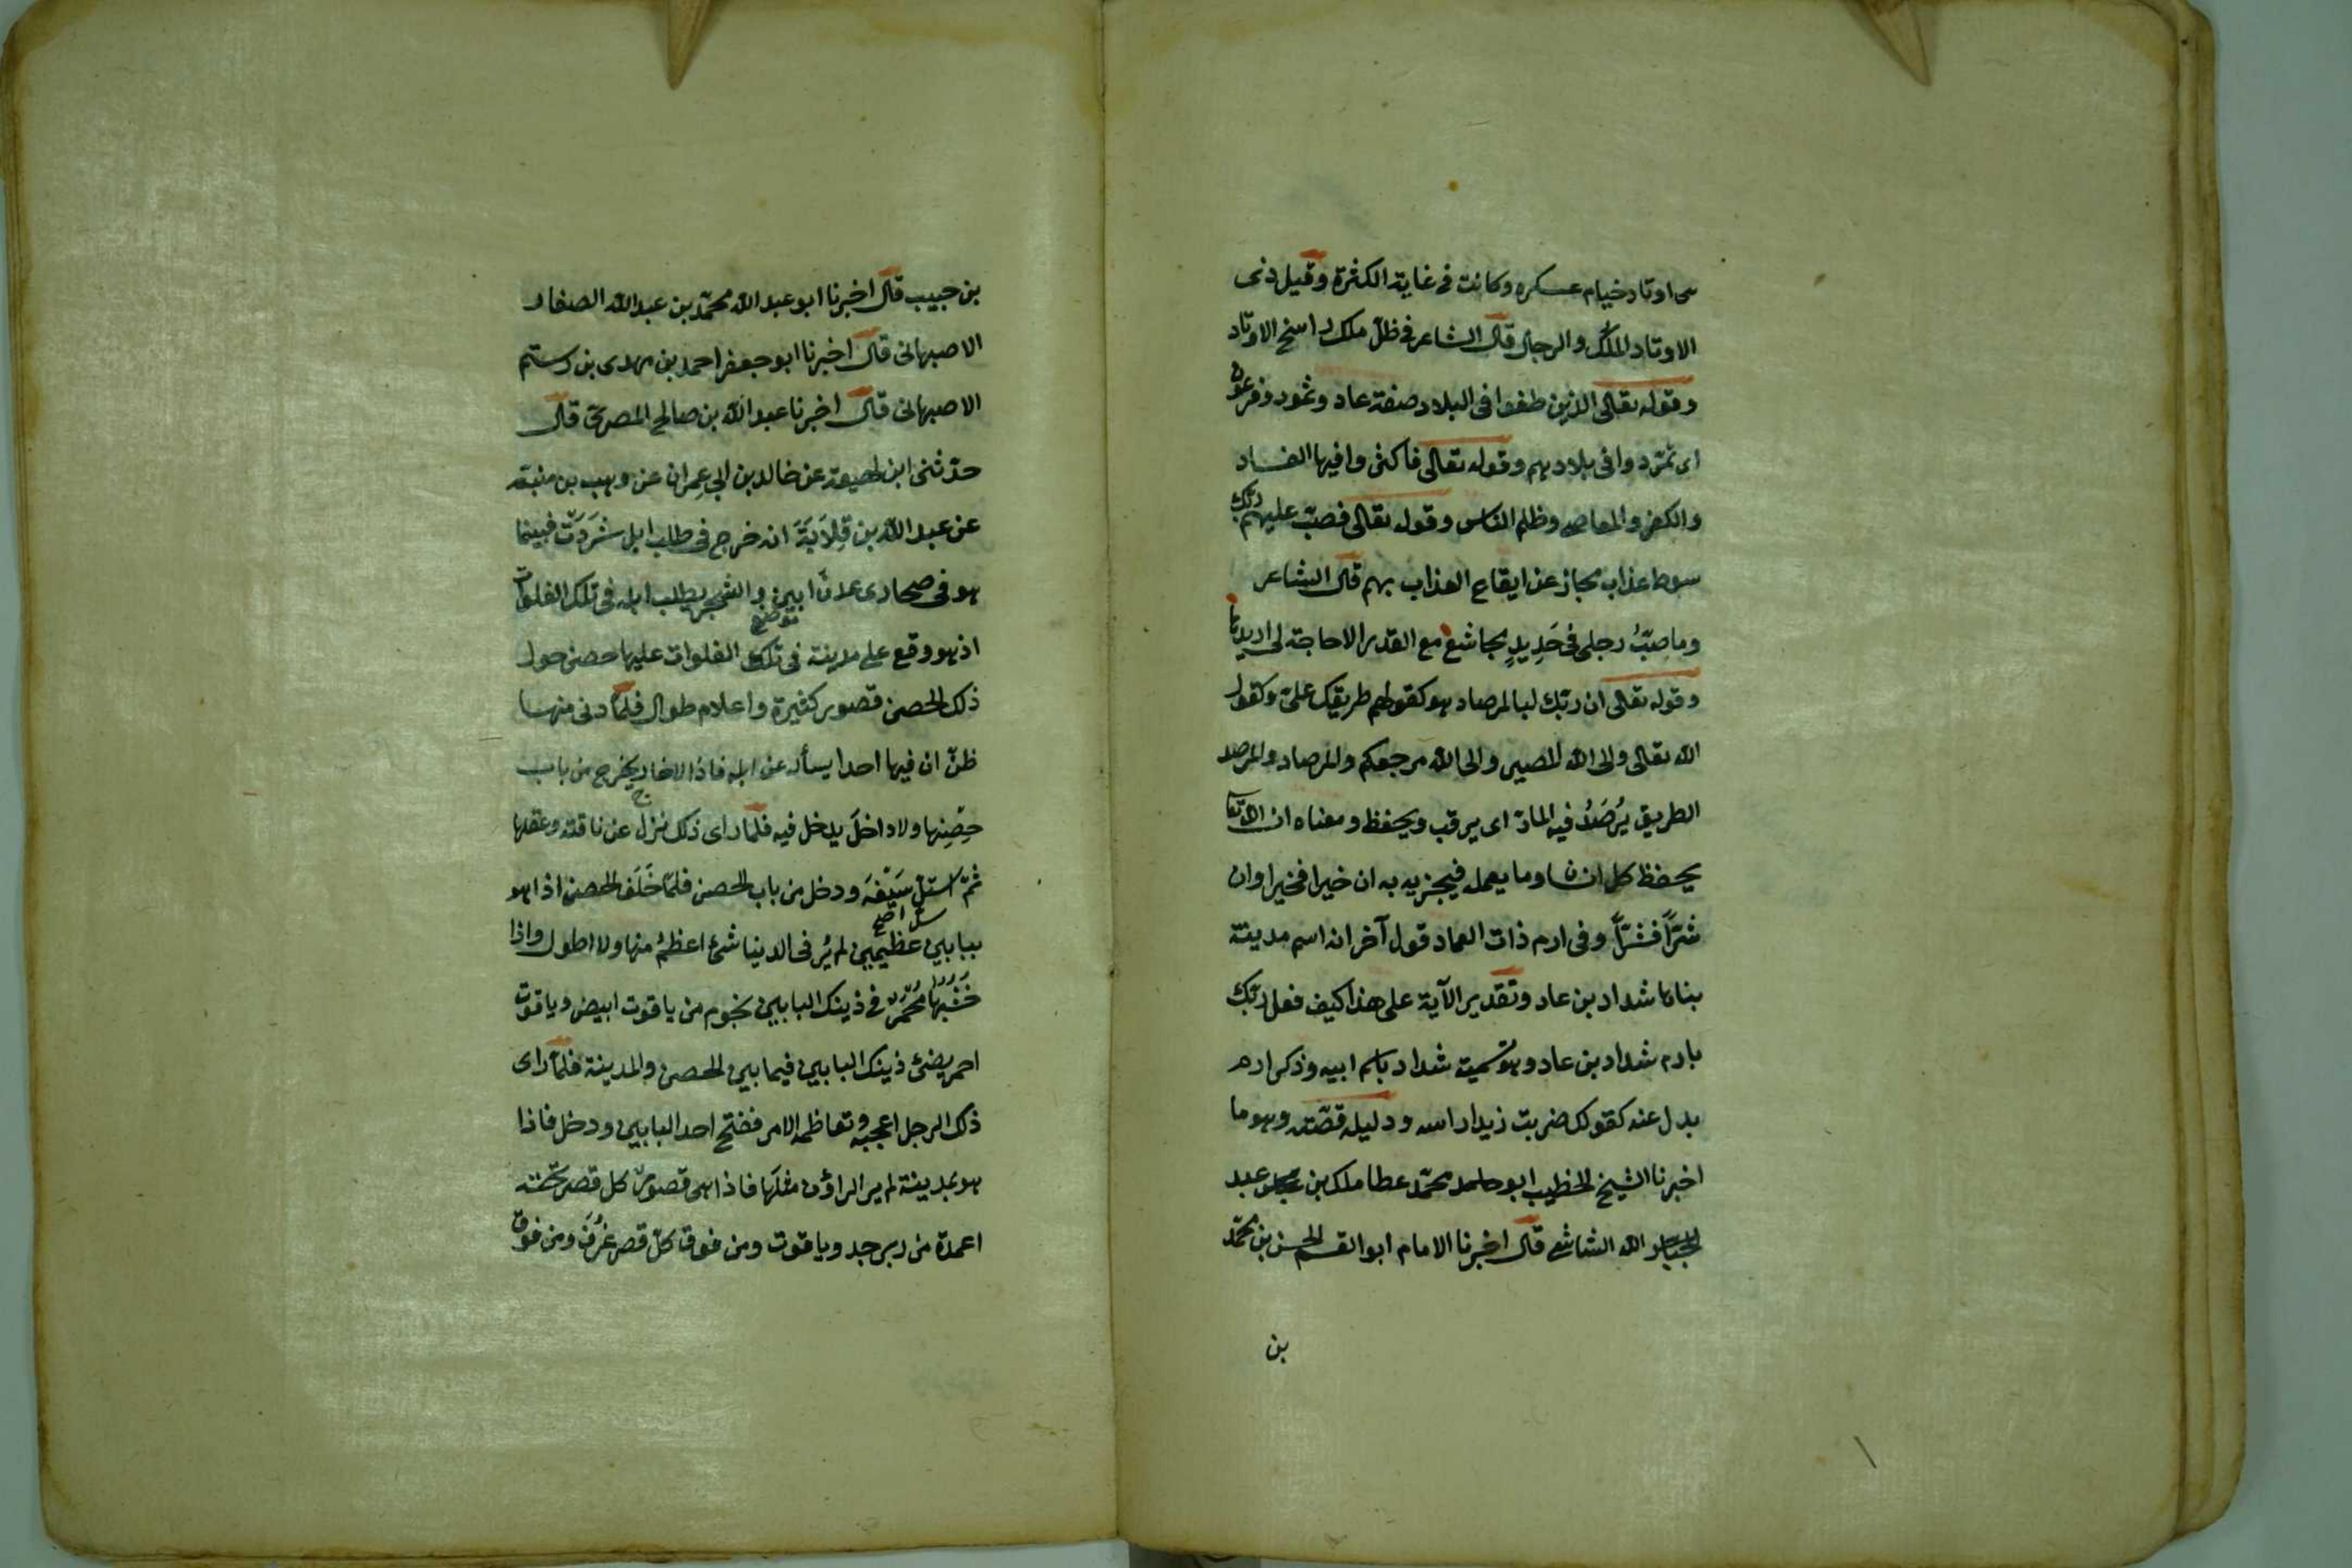 هى اوتاد خيام عسكره وكانت فى غاية الكثرة وقيل ذى
الاوتاد الملك والرجال قال الشاعر فى ظل ملك راسخ الاوتاد
وقوله تعالى الذين طغوا فى البلاد صفة عاد وثمود وفرعون
اى تمردوا فى بلادهم وقوله تعالى فاكثروا فيها الفساد
والكفر والمعاصى وظلم الناس وقوله تعالى فصبّ عليهم ربّك
سوط عذاب مجاز عن ايقاع العذاب بهم قال الشاعر
وما صبّ رجلى فى حَدِيدِ مجاشع مع القدر الا حاجة لى اريدها
وقوله تعالى ان ربّك لبالمرصاد هو كقولهم طريقك علىّ وكقول
الله تعالى والى الله المصير والى الله مرجعكم والمرصاد والمرصد
الطريق يُرصَدُ فيه المادّ اى يرقب ويحفظ ومعناه ان الله تعا
يحفظ كل انسان وما يعمله فيجزيه به ان خيرا فخيرا وان
شرّاً فشرّاً وفى ارم ذات العماد قول آخر انه اسم مدينة
بناها شداد بن عاد وتقدير الآية على هذا كيف فعل ربّك
بارم شداد بن عاد وهو تسمية شداد باسم ابيه وذكر ارم
بدل عنه كقولك ضربت زيدا راسه ودليله قصّته وهو ما
اخبرنا الشيخ الخطيب ابو حامد محمّد عطا ملك بن عبد
الله الشاشى قال اخبرنا الامام ابو القسم الحسن بن محمّد
بن
بن حبيب قال اخبرنا ابو عبد الله محمّد بن عبد الله الصفار
الاصبهانى قال اخبرنا ابو جعفر احمد بن مهدى بن رستم
الاصبهانى قال اخبرنا عبد الله بن صالح المصرىّ قال
حدّثنى ابن لهيعة عن خالد بن ابى عِمران عن وهب بن منبّه
عن عبد الله بن قِلَابَةَ انه خرج فى طلب ابل شَرَدَتْ فبينما
هو فى صحارى عدن ابين والشجر يطلب ابله فى تلك الفلوات
موضع
اذ هو وقع على مدينة فى تلك الفلوات عليها حصن حول
ذلك الحصن قصور كثيرة واعلام طوال فلمّا دنى منها
ظنّ ان فيها احدا يسأله عن ابله فاذا لا خارج يخرج من باب
حِصْنِها ولا داخلَ يدخل فيه فلمّا راى ذلك نزل عن ناقته وعقلها
ثمّ استلّ سَيْفَهَ ودخل من باب الحصن فلمّا خَلَف الحصن اذا هو
سلّ اصح
ببابين عظيمين لم يُر فى الدنيا شئ اعظمُ منها ولا اطول واذا
خشبها مُجَمَّرٌ فى ذينك البابين نجوم من ياقوت ابيض وياقوت
احمر يضئ ذينك البابين فيما بين الحصن والمدينة فلمّا راى
ذلك الرجل اعجبه وتعاظمه الامر ففتح احد البابين ودخل فاذا
هو بمدينة لم ير الراؤن مثلَها فاذا هى قصور كل قصر تحته
اعمدة من زبرجد وياقوت ومن فوق كلّ قصر غُرَف ومن فوق